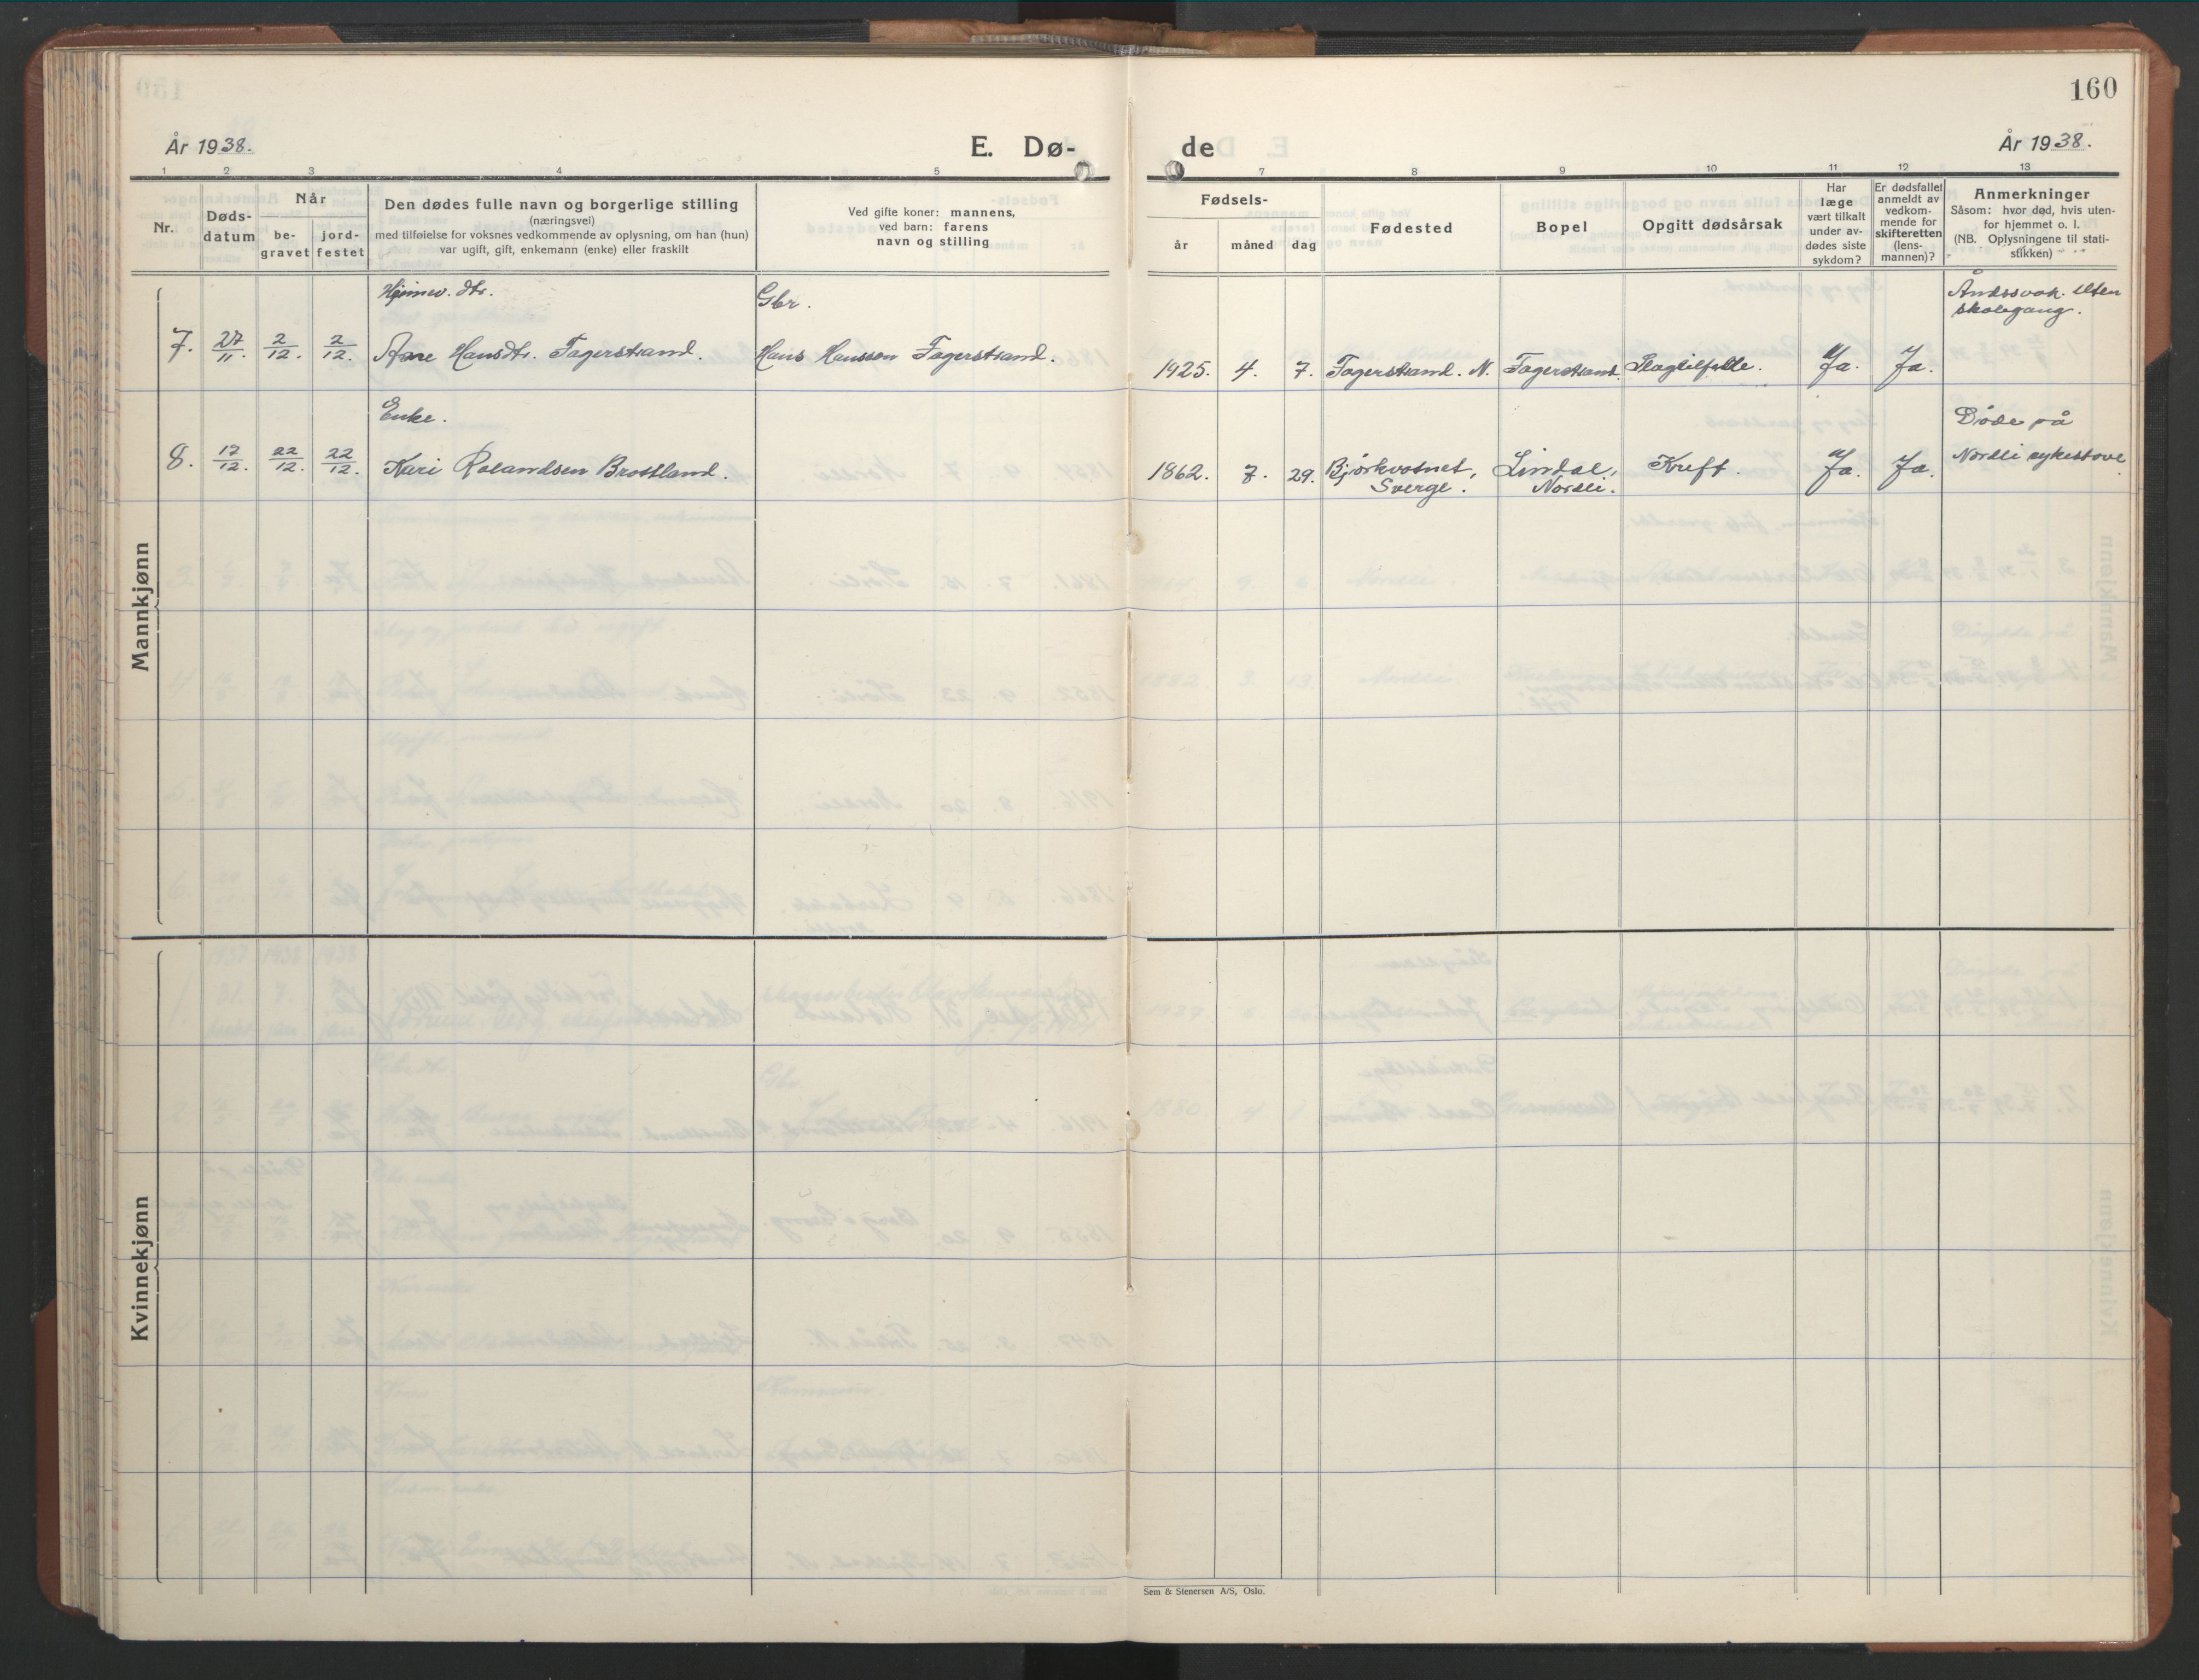 160
År 1938.
E. Dø-
de
År 1938.
1 2 3 4 5 7 8 9 10 11 12 13
Nr.
Døds-
datum
Når
be-
gravet
jord-
festet
Den dødes fulle navn og borgerlige stilling
(næringsvei)
med tilføielse for voksnes vedkommende av oplysning, om han (hun)
var ugift, gift, enkemann (enke) eller fraskilt
Ved gifte koner: mannens,
ved barn: farens
navn og stilling
Fødsels-
år
måned
dag
Fødested
Bopel
Opgitt dødsårsak
Har
læge
vært tilkalt
under av-
dødes siste
sykdom?
Er dødsfallet
anmeldt av
vedkom-
mende for
skifteretten
(lens-
mannen)?
Anmerkninger
Såsom: hvor død, hvis uten-
for hjemmet o. l.
(NB. Oplysningene til stati-
stikken)
Mannkjønn
Hjemmev. dtr.
Gbr.
Åndssvak. Uten
skolegang.
7. 27/11. 2/12. 2/12. Hansdtr. Fagerstrand. Hans Hanssen Fagerstrand. 1925. 4. 7. Fagerstrand. N. Fagerstrand. Slagtilfelle. Ja. Ja.
Enke.
Døde på
8. 17/12. 22/12. 22/12. Kari Rolandsen Brattland. 1862. 7. 29. Bjørkvatnet, Lindal, Kreft. Ja. Ja. Nordli sykestove
Sverge. Nordli.
Kvinnekjønn
Sem & Stenersen A/S, Oslo.